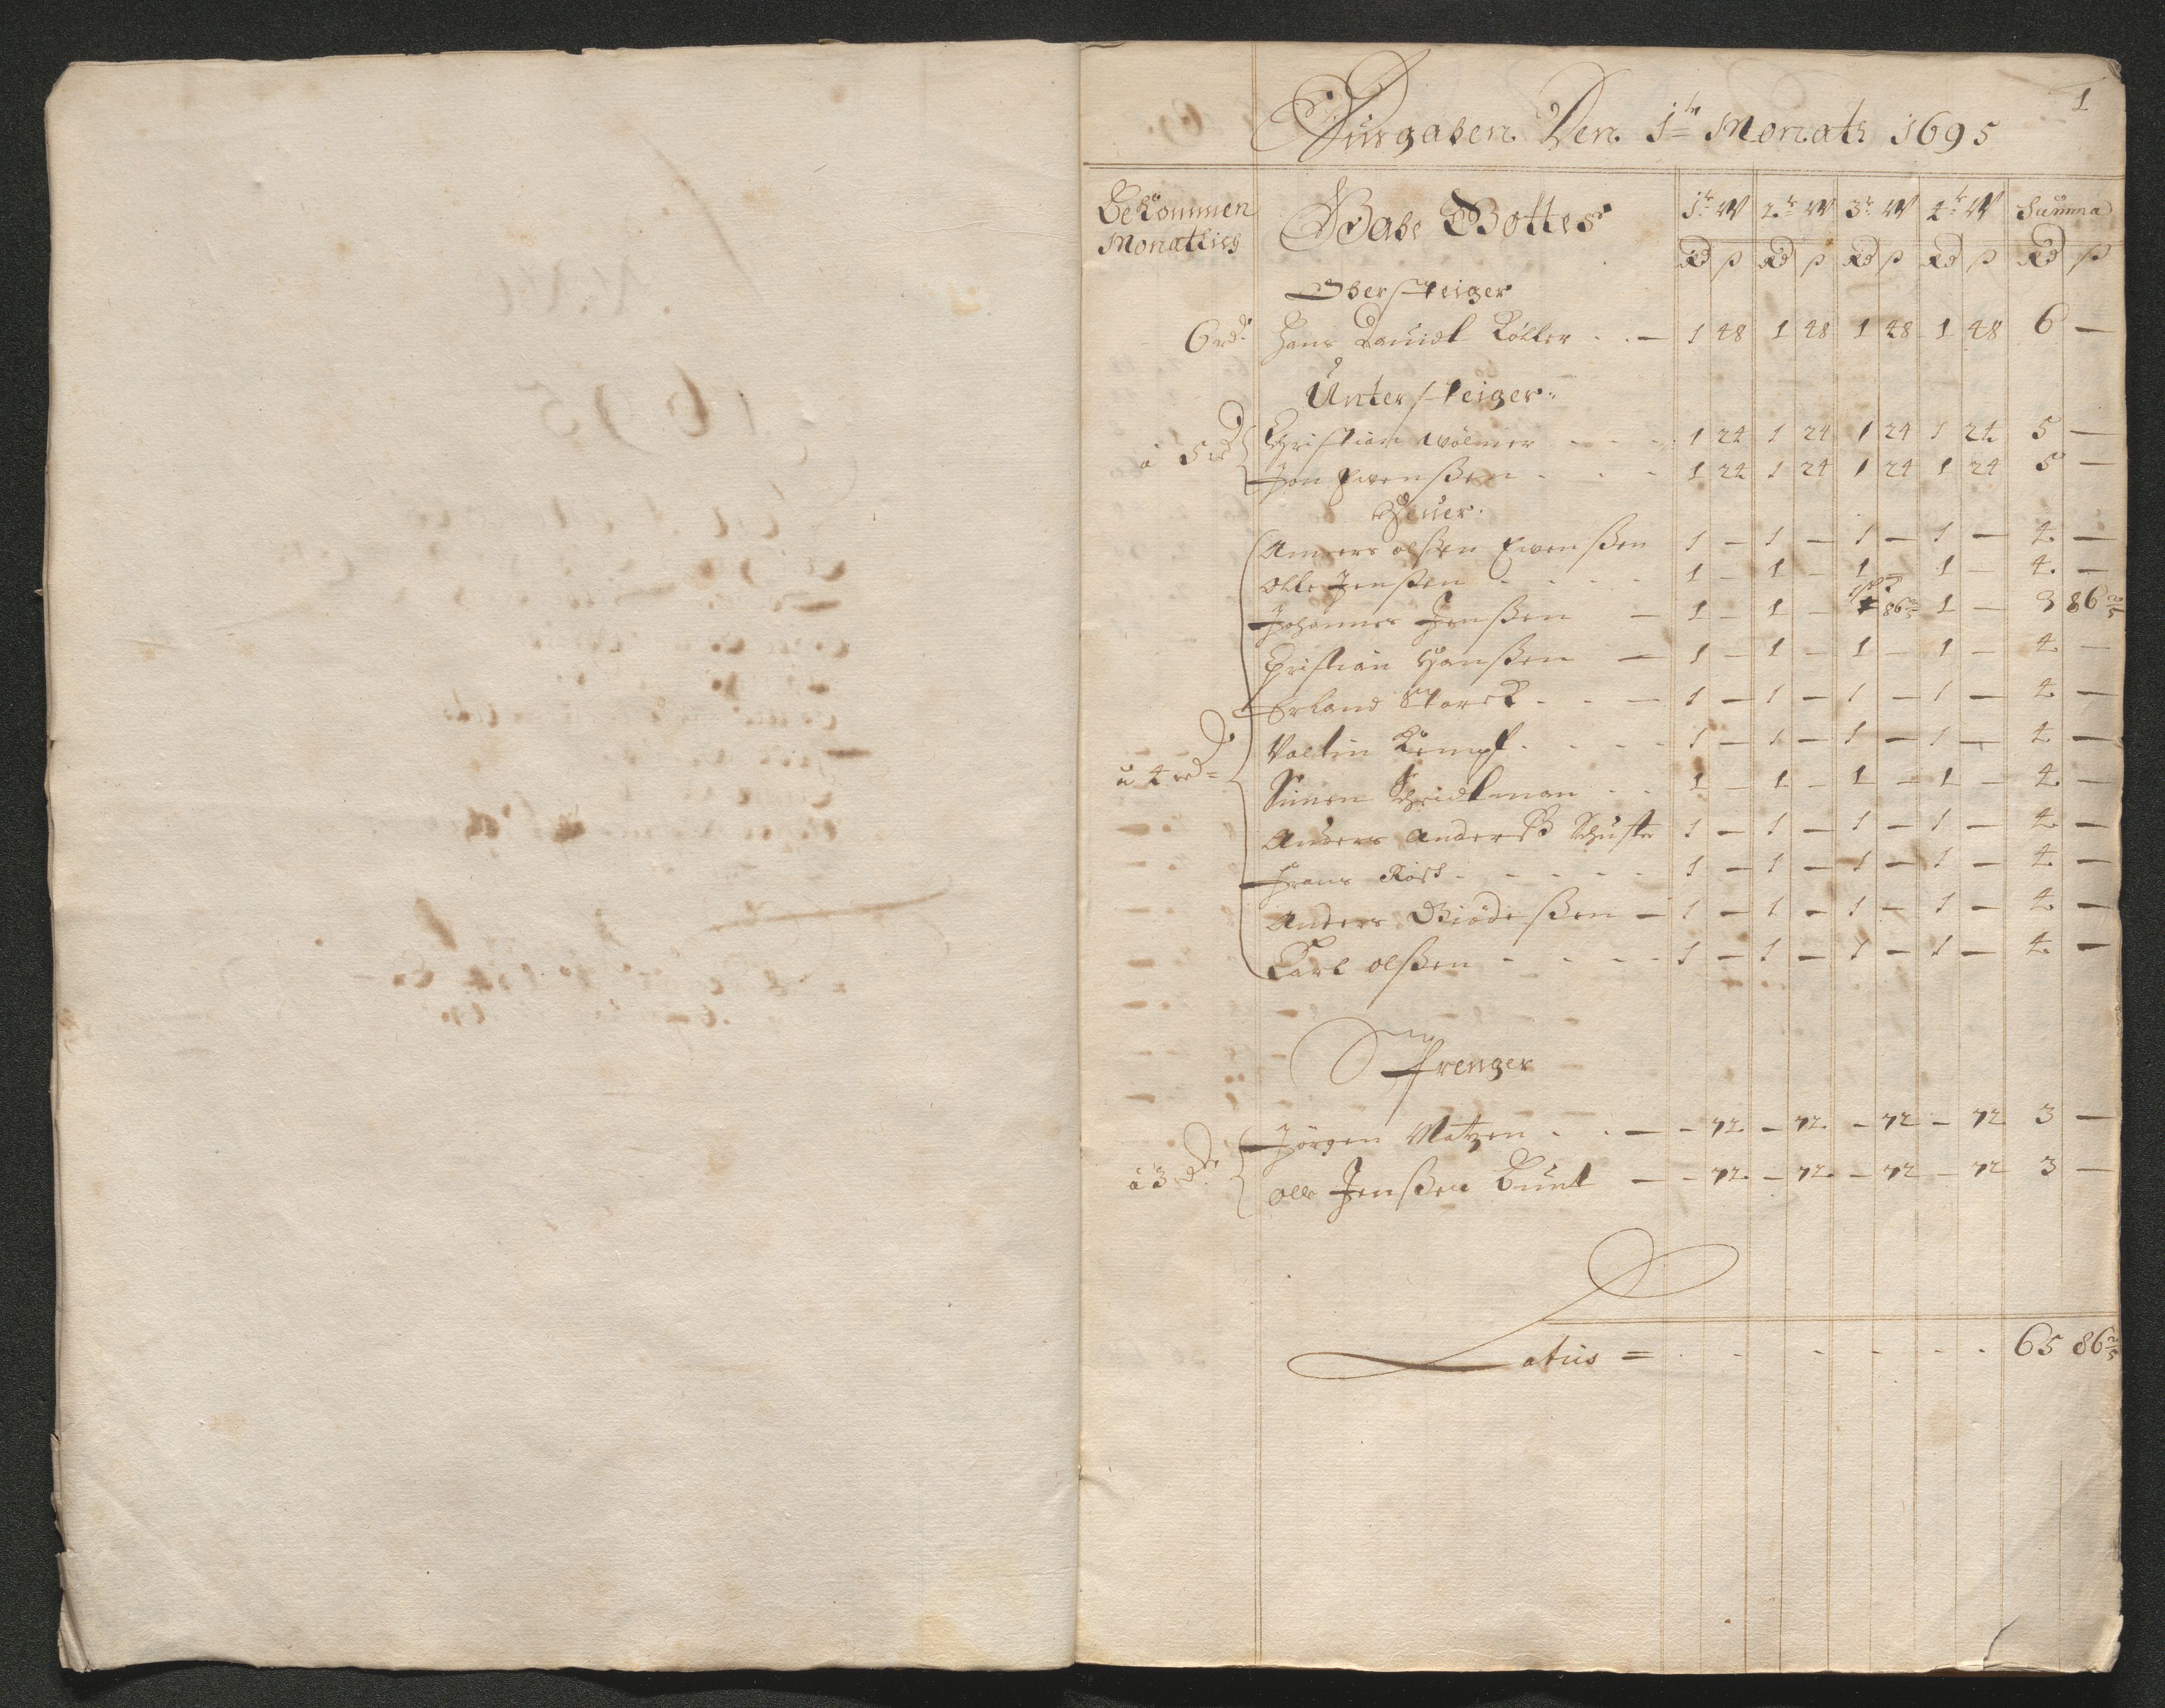 1
Ausgaben Den 1te Monath 1695
Bekommen Monathlich
Gabe Gottes
1te W 2te W 3te W 4te W Summa
Rd ß Rd ß Rd ß Rd ß Rd ß
Obersteiger
6 rd. Hans Dauidt Töller . . — 1 48 1 48 1 48 1 48 6 —
Untersteiger.
à 5 rd Christian Wölmer - - - 1 24 1 24 1 24 1 24 5 —
Jon Evenßen - - - 1 24 1 24 1 24 1 24 5 —
Heuer.
à 4 rd = Anders Olßen Evenßen 1 — 1 — 1 — 1 — 4 —
Olle Jenßen - - - - 1 — 1 — 1 — 1 — 4 —
Johannes Jenßen — 1 — 1 — 86 2/5 1 — 3 86 2/5
Christian Hanßen — 1 — 1 — 1 — 1 — 4 —
Erland Storck - - — 1 — 1 — 1 — 1 — 4 —
Valtin Kempf - - - - 1 — 1 — 1 — 1 — 4 —
Simon - - 1 — 1 — 1 — 1 — 4 —
Anders Anderß Schuster 1 — 1 — 1 — 1 — 4 —
Frans - - - - - 1 — 1 — 1 — 1 — 4 —
Anders — 1 — 1 — 1 — 1 — 4 —
Carl Olßen - - - - 1 — 1 — 1 — 1 — 4 —
à 3 rd. Jörgen Matzen . . — - 72 - 72 - 72 - 72 3 —
Olle Jenßen — - 72 - 72 - 72 - 72 3 —
Latus = - - - - - - 65 86 2/5